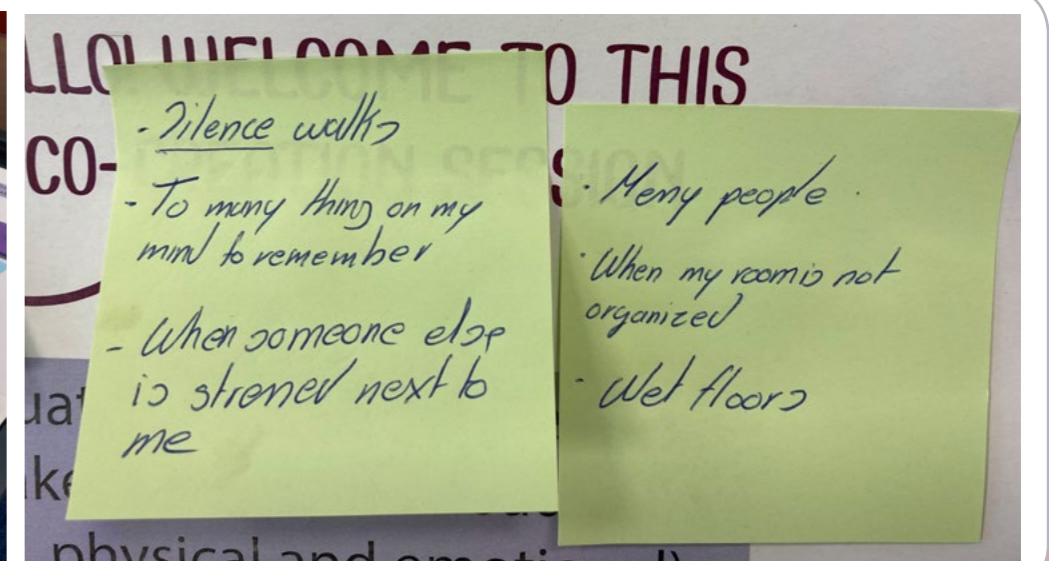 LLO! WELCOME TO THIS
CO-CREATION SESSION
- Silence walks
- To many thing on my
mind to remember
- When someone else
is stresed next to
me
· Meny people
· When my room is not
organized
· Wet floors
physical and emotional)